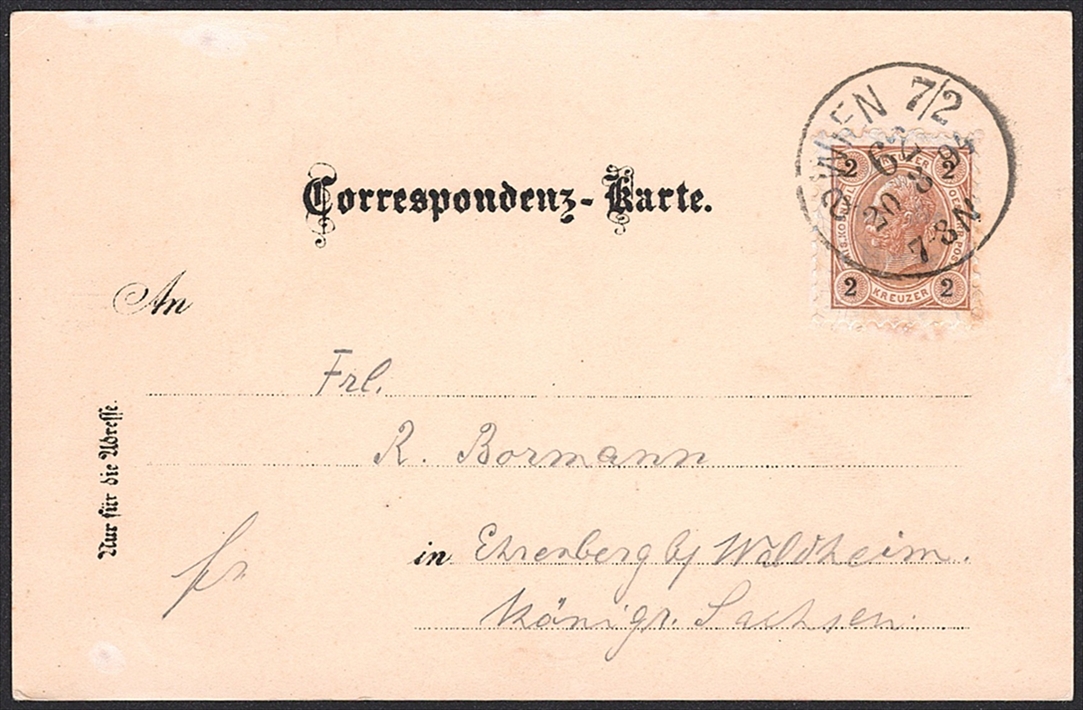 WIEN 7/2
20 8 94
7-8 N
2 KREUZER 2
2 KREUZER 2
Correspondenz-Karte.
An
Frl.
R. Bormann
in Ehrenberg b/ Waldheim.
Königr. Sachsen.
Nur für die Adresse.